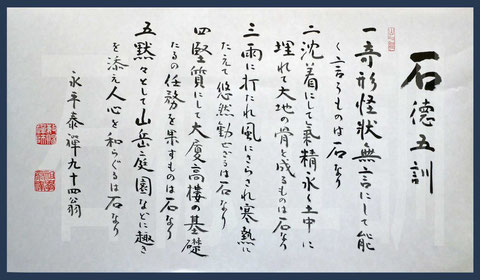 石徳五訓
一 奇形怪状無言にして能
く言うものは石なり
二 沈着にして氣精永く土中に
埋れて大地の骨と成るものは石なり
三 雨に打たれ風にさらされ寒熱に
たえて悠然動ぜざるは石なり
四 堅質にして大厦高楼の基礎
たるの任務を果すものは石なり
五 黙々として山岳庭園などに趣き
を添え人心を和らぐるは石なり
永平泰禅九十四翁